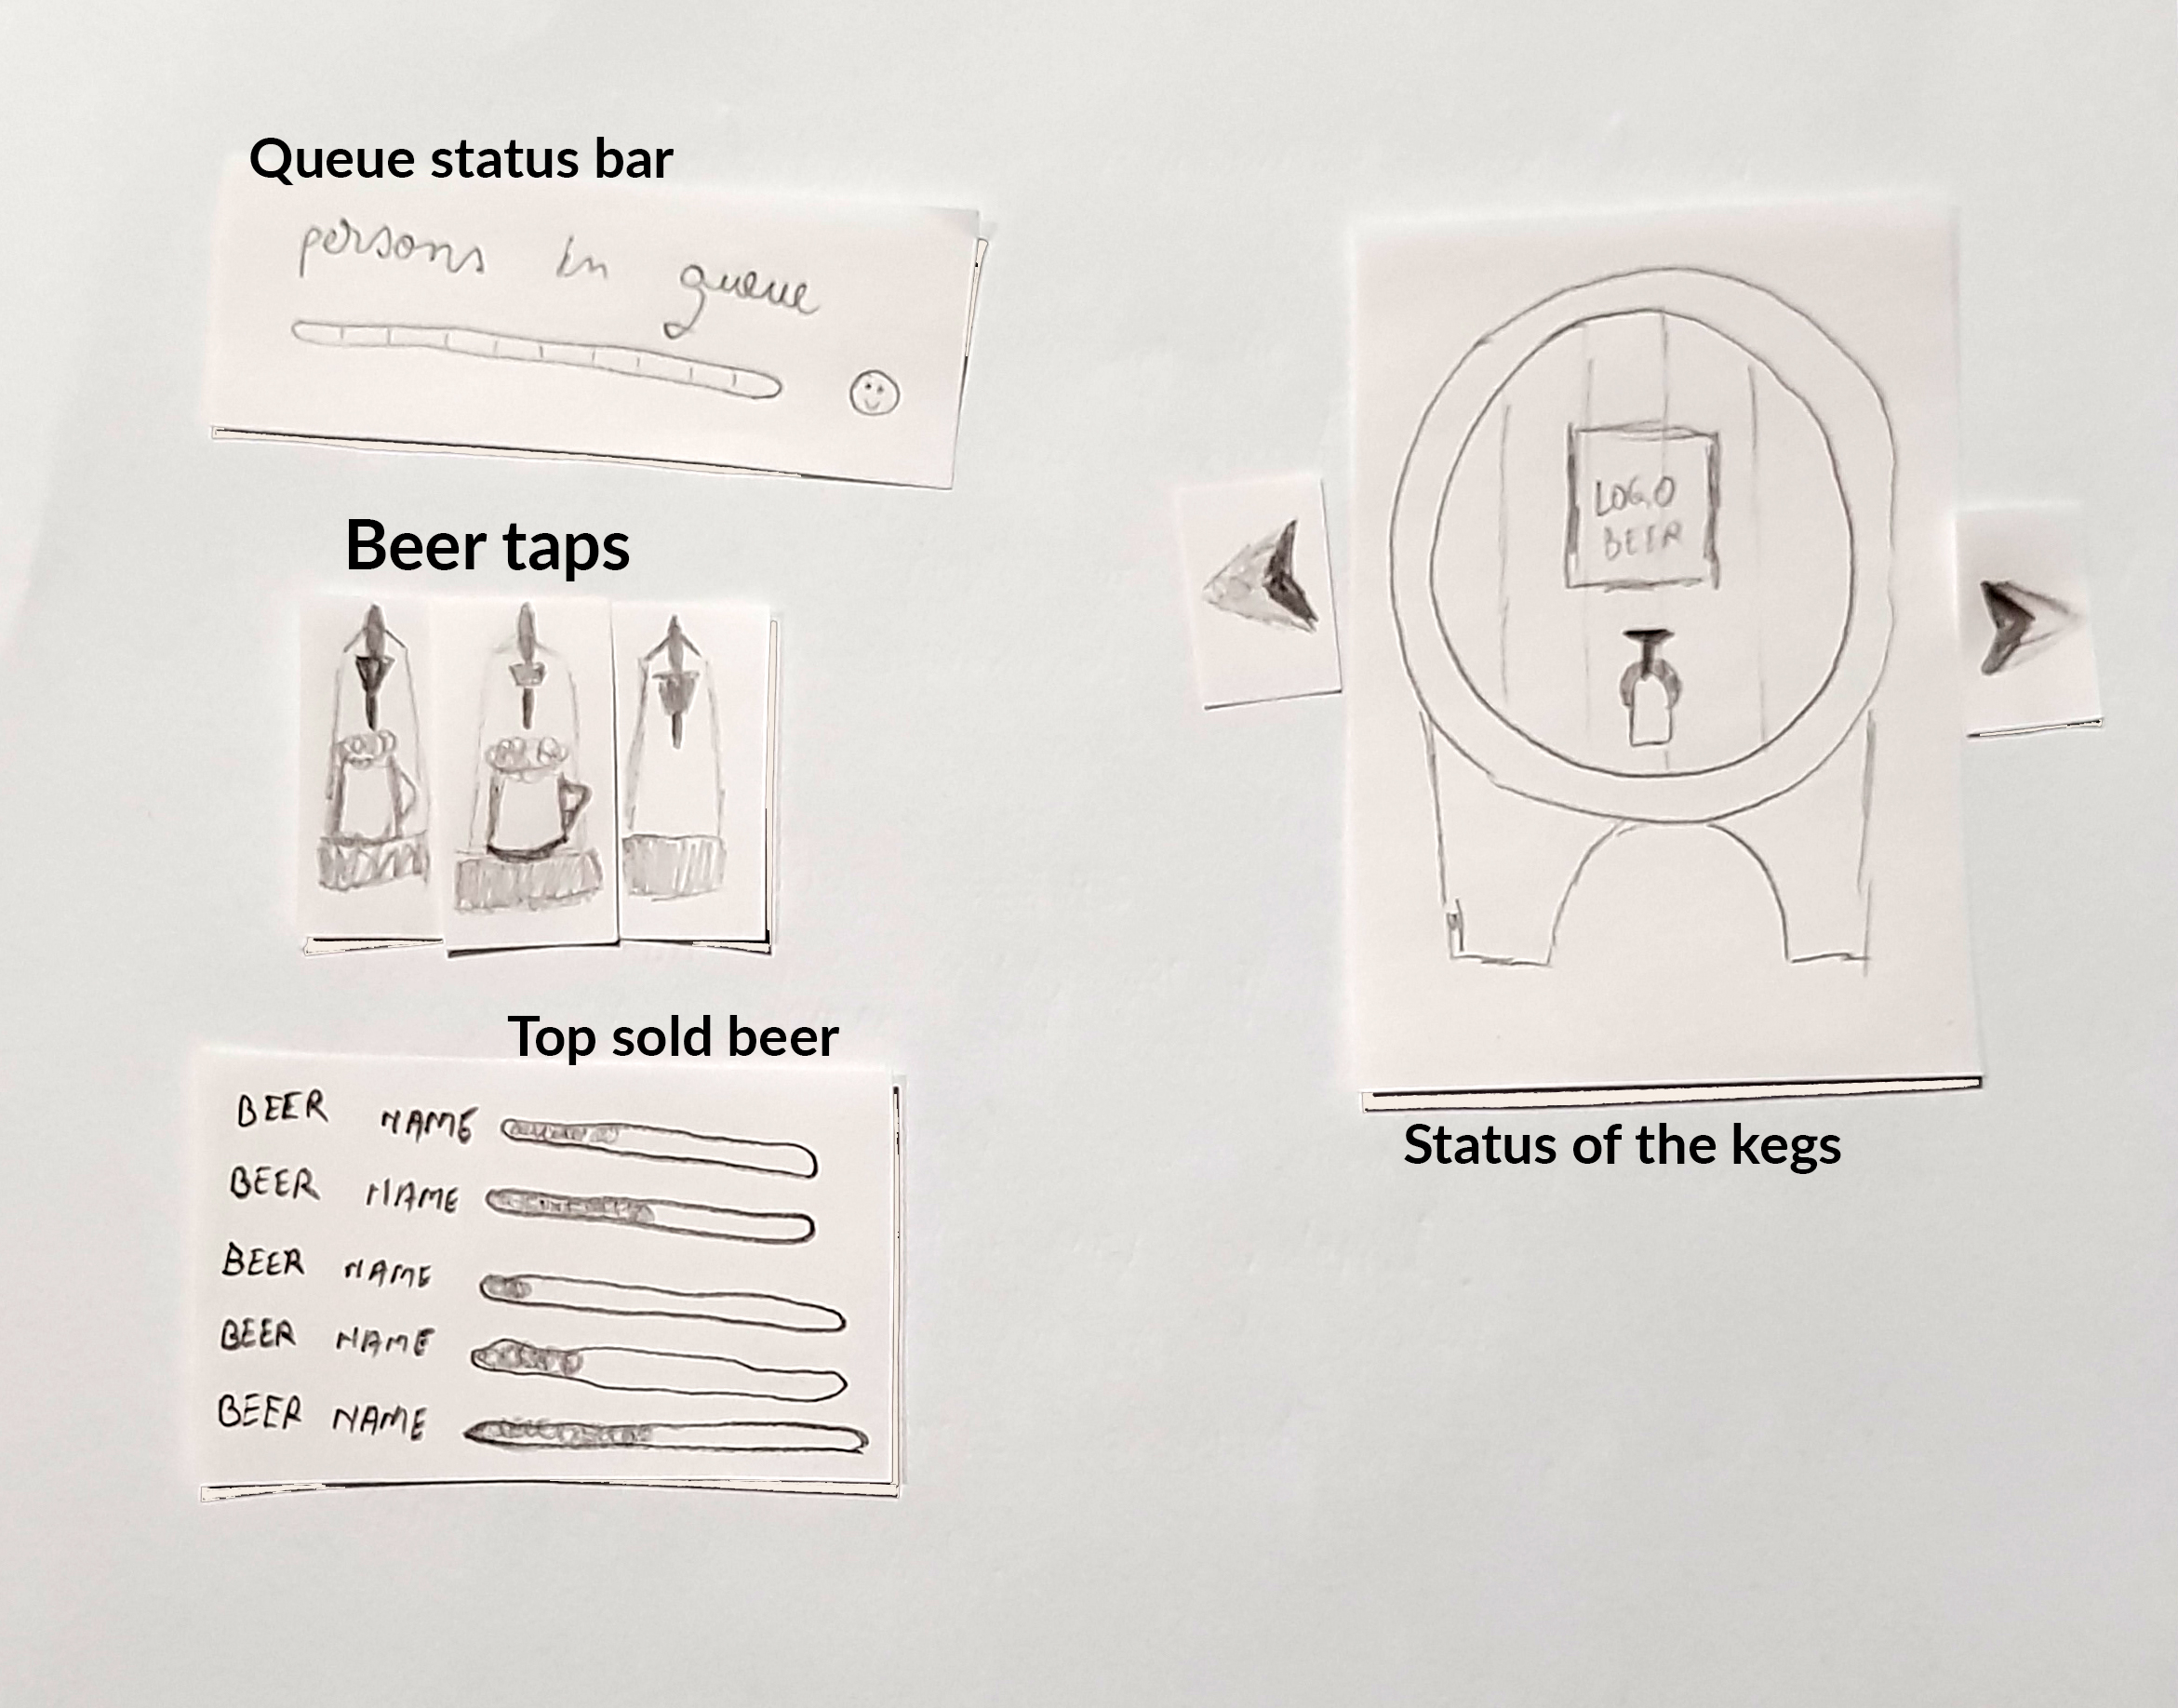 Queue status bar
persons in queue
Beer taps
Top sold beer
BEER NAME
BEER NAME
BEER NAME
BEER NAME
BEER NAME
LOGO
BEER
Status of the kegs